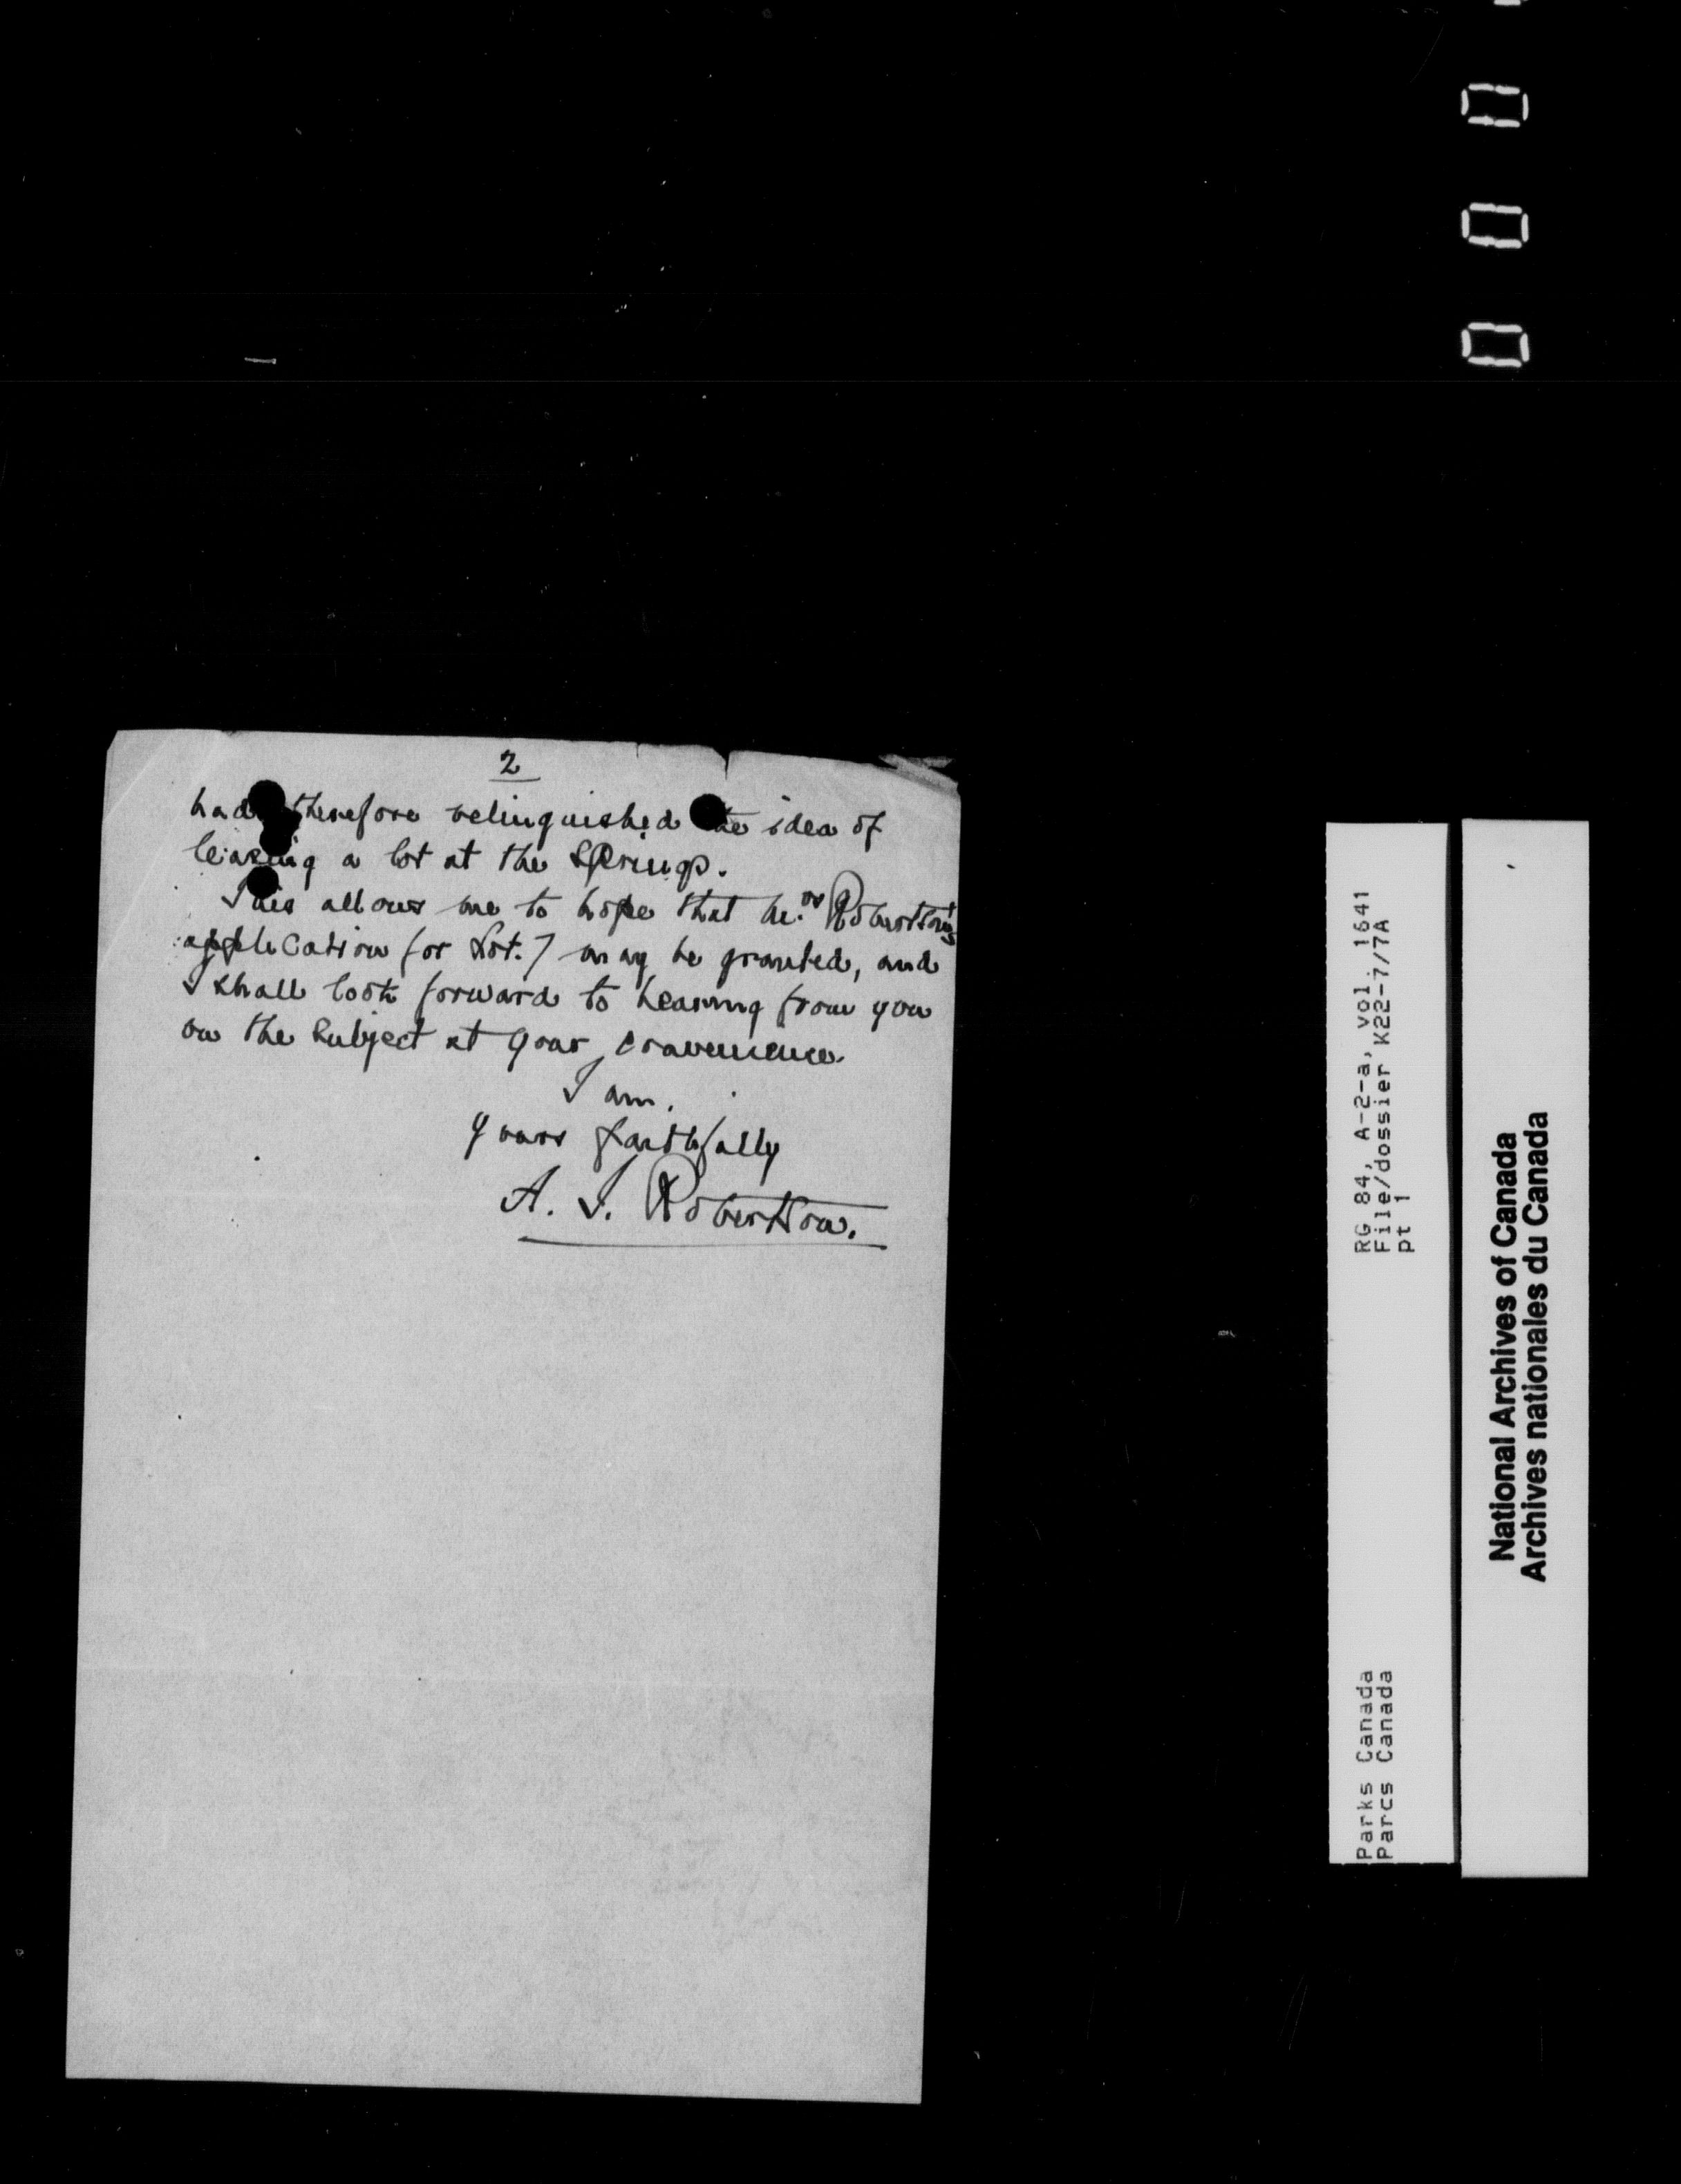 2
had therefore relinquished the idea of
leasing a lot at the Springs.
This allows me to hope that Mrs Robertson's
application for Lot. 7 may be granted, and
I shall look forward to hearing from you
on the subject at your convenience.
I am.
Yours faithfully
A. J. Robertson.
RG 84, A-2-a, vol. 1641
File/dossier K22-7/7A
pt 1
Parks Canada
Parcs Canada
National Archives of Canada
Archives nationales du Canada